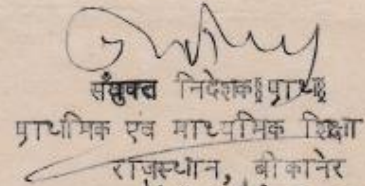 संयुक्त निदेशक॥प्राथ॥
प्राथमिक एवं माध्यमिक शिक्षा
राजस्थान, बीकानेर